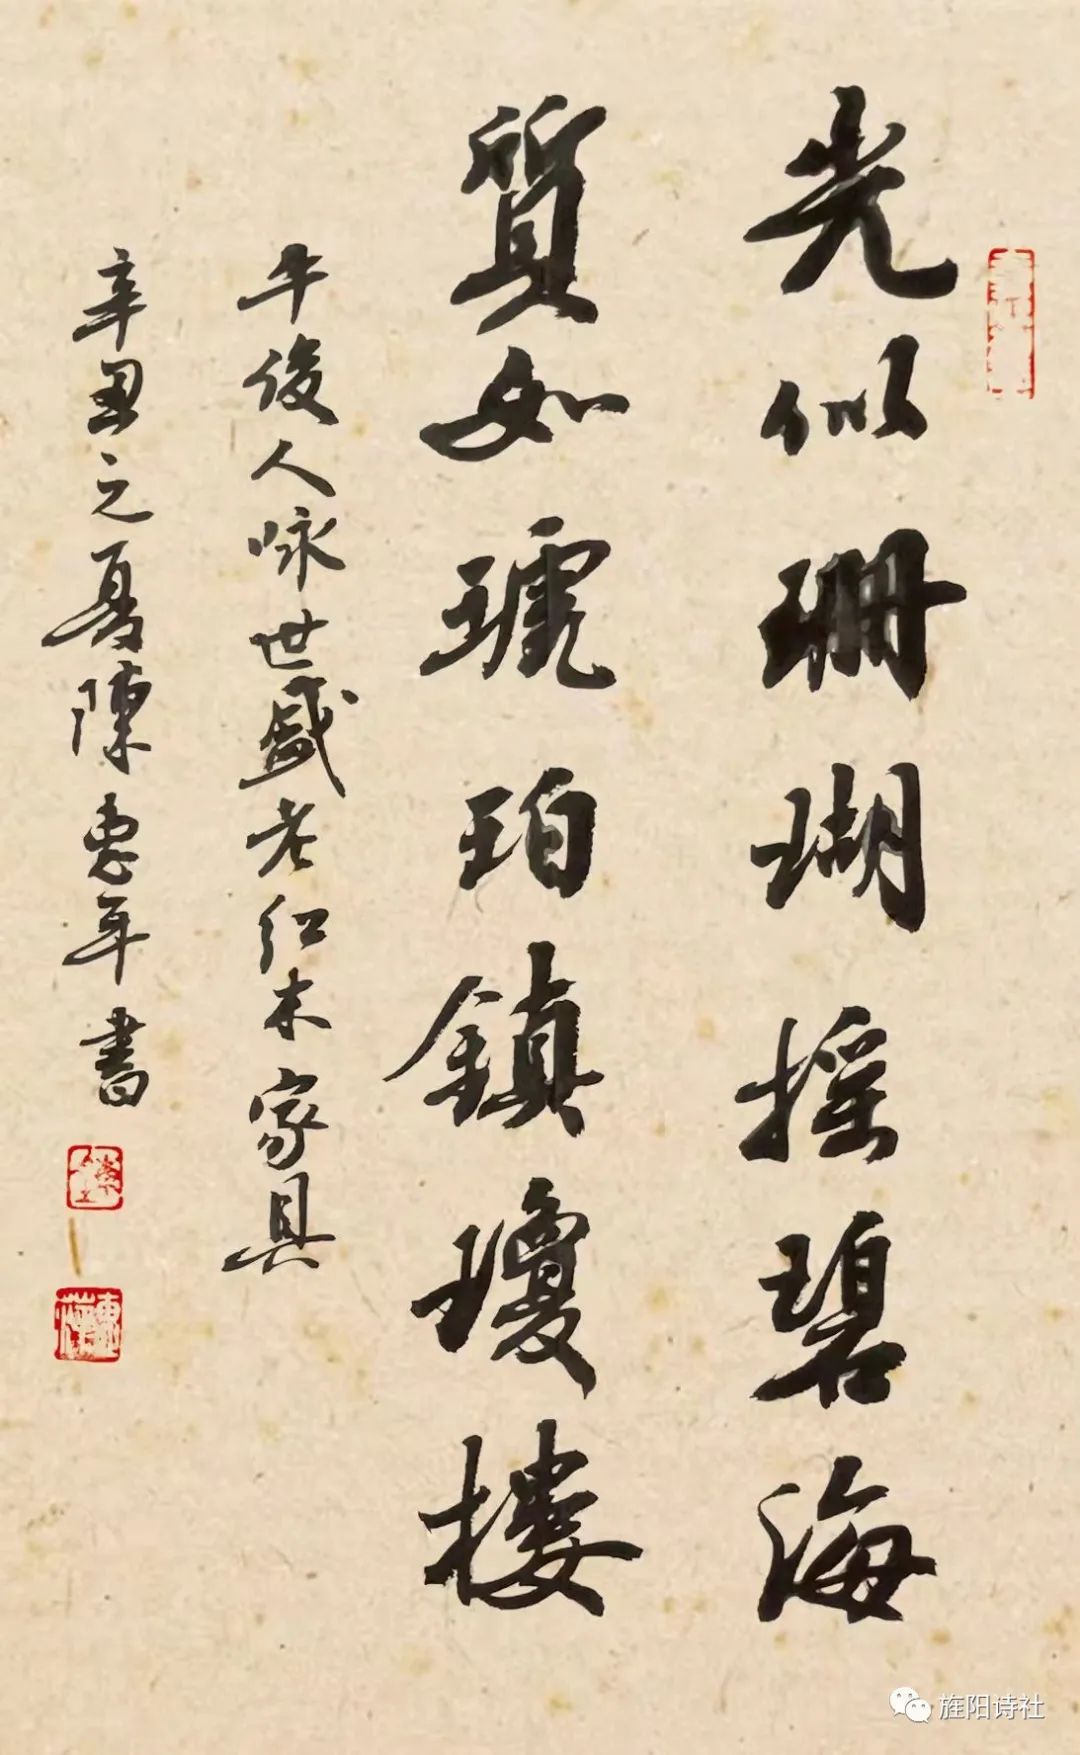 光似珊瑚摇碧海
質如琥珀鎮瓊樓
牛俊人咏世盛老红木家具
辛丑之夏陳惠年書
旌阳诗社